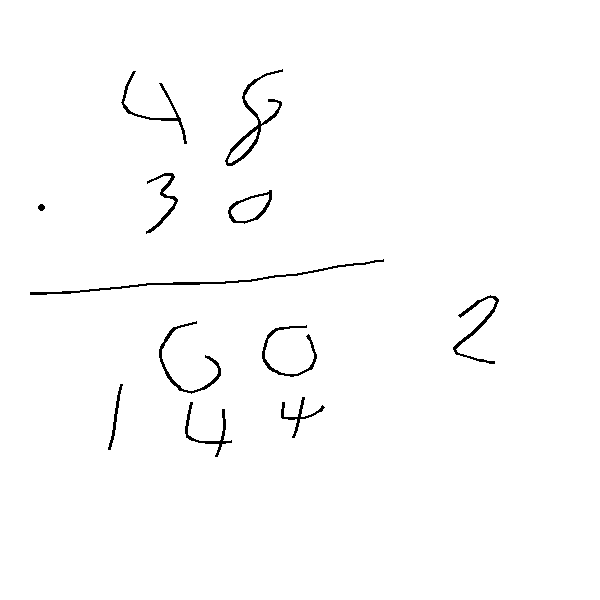 48
· 30
60 2
144